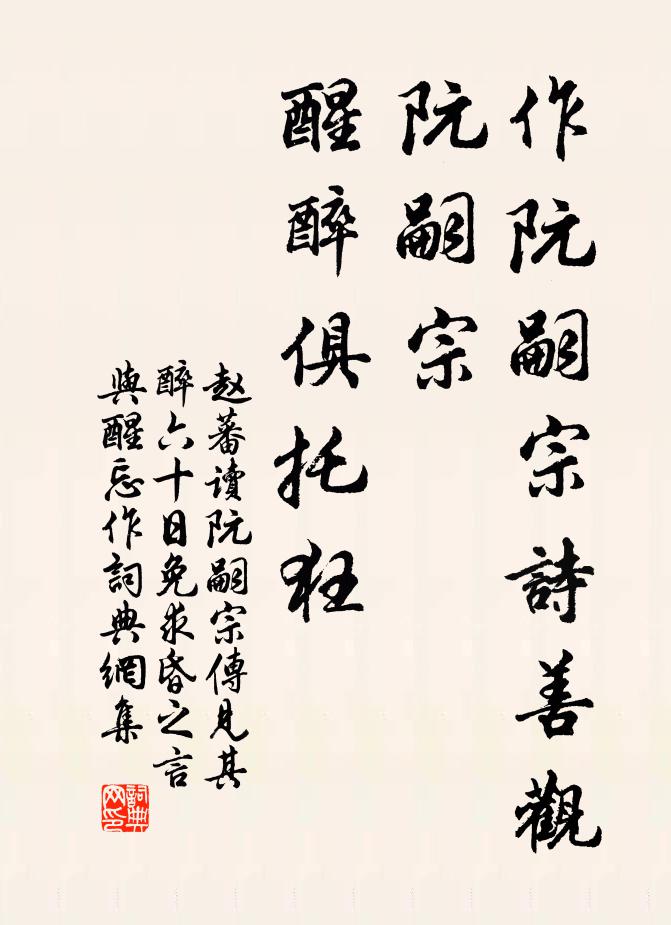 作阮嗣宗詩善觀
阮嗣宗
醒醉俱托狂
赵蕃讀阮嗣宗傳見其
醉六十日免求昏之言
與醒忘作詞典網集
詞典
网印